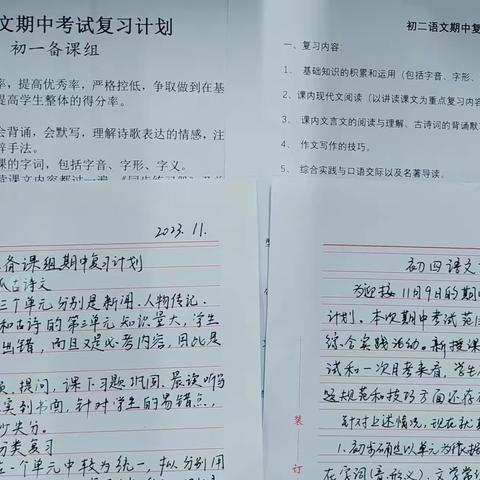 文期中考试复习计划
初一备课组
率，提高优秀率，严格控低，争取做到在基
提高学生整体的得分率。
会背诵，会默写，理解诗歌表达的情感，注
辞手法。
课的字词，包括字音、字形、字义。
初二语文期中复
一、复习内容：
1、基础知识的积累和运用（包括字音、字形、
2、课内现代文阅读（以讲读课文为重点复习内容
3、课内文言文的阅读与理解、古诗词的背诵默写
4、作文写作的技巧。
5、综合实践与口语交际以及名著导读。
2023. 11.
备课组期中复习计划
古诗文
三个单元分别是新闻、人物传记、
和古诗的第3单元知识量大，学生
出错，而且又是必考内容，因此是
提问，课下习题巩固、晨读听写
实到书面，针对学生的易错点，
少失分。
分类复习
一个单元中较为统一，拟分别用
初四语文
为迎接11月9日的期
计划。本次期中考试范
综合实践活动。新授课
试和一次月考来看，学生
规范和技巧方面还存
针对上述情况，现在就
装
订
1.初步确定以单元为依据
在字词(音、形、义)、文学常